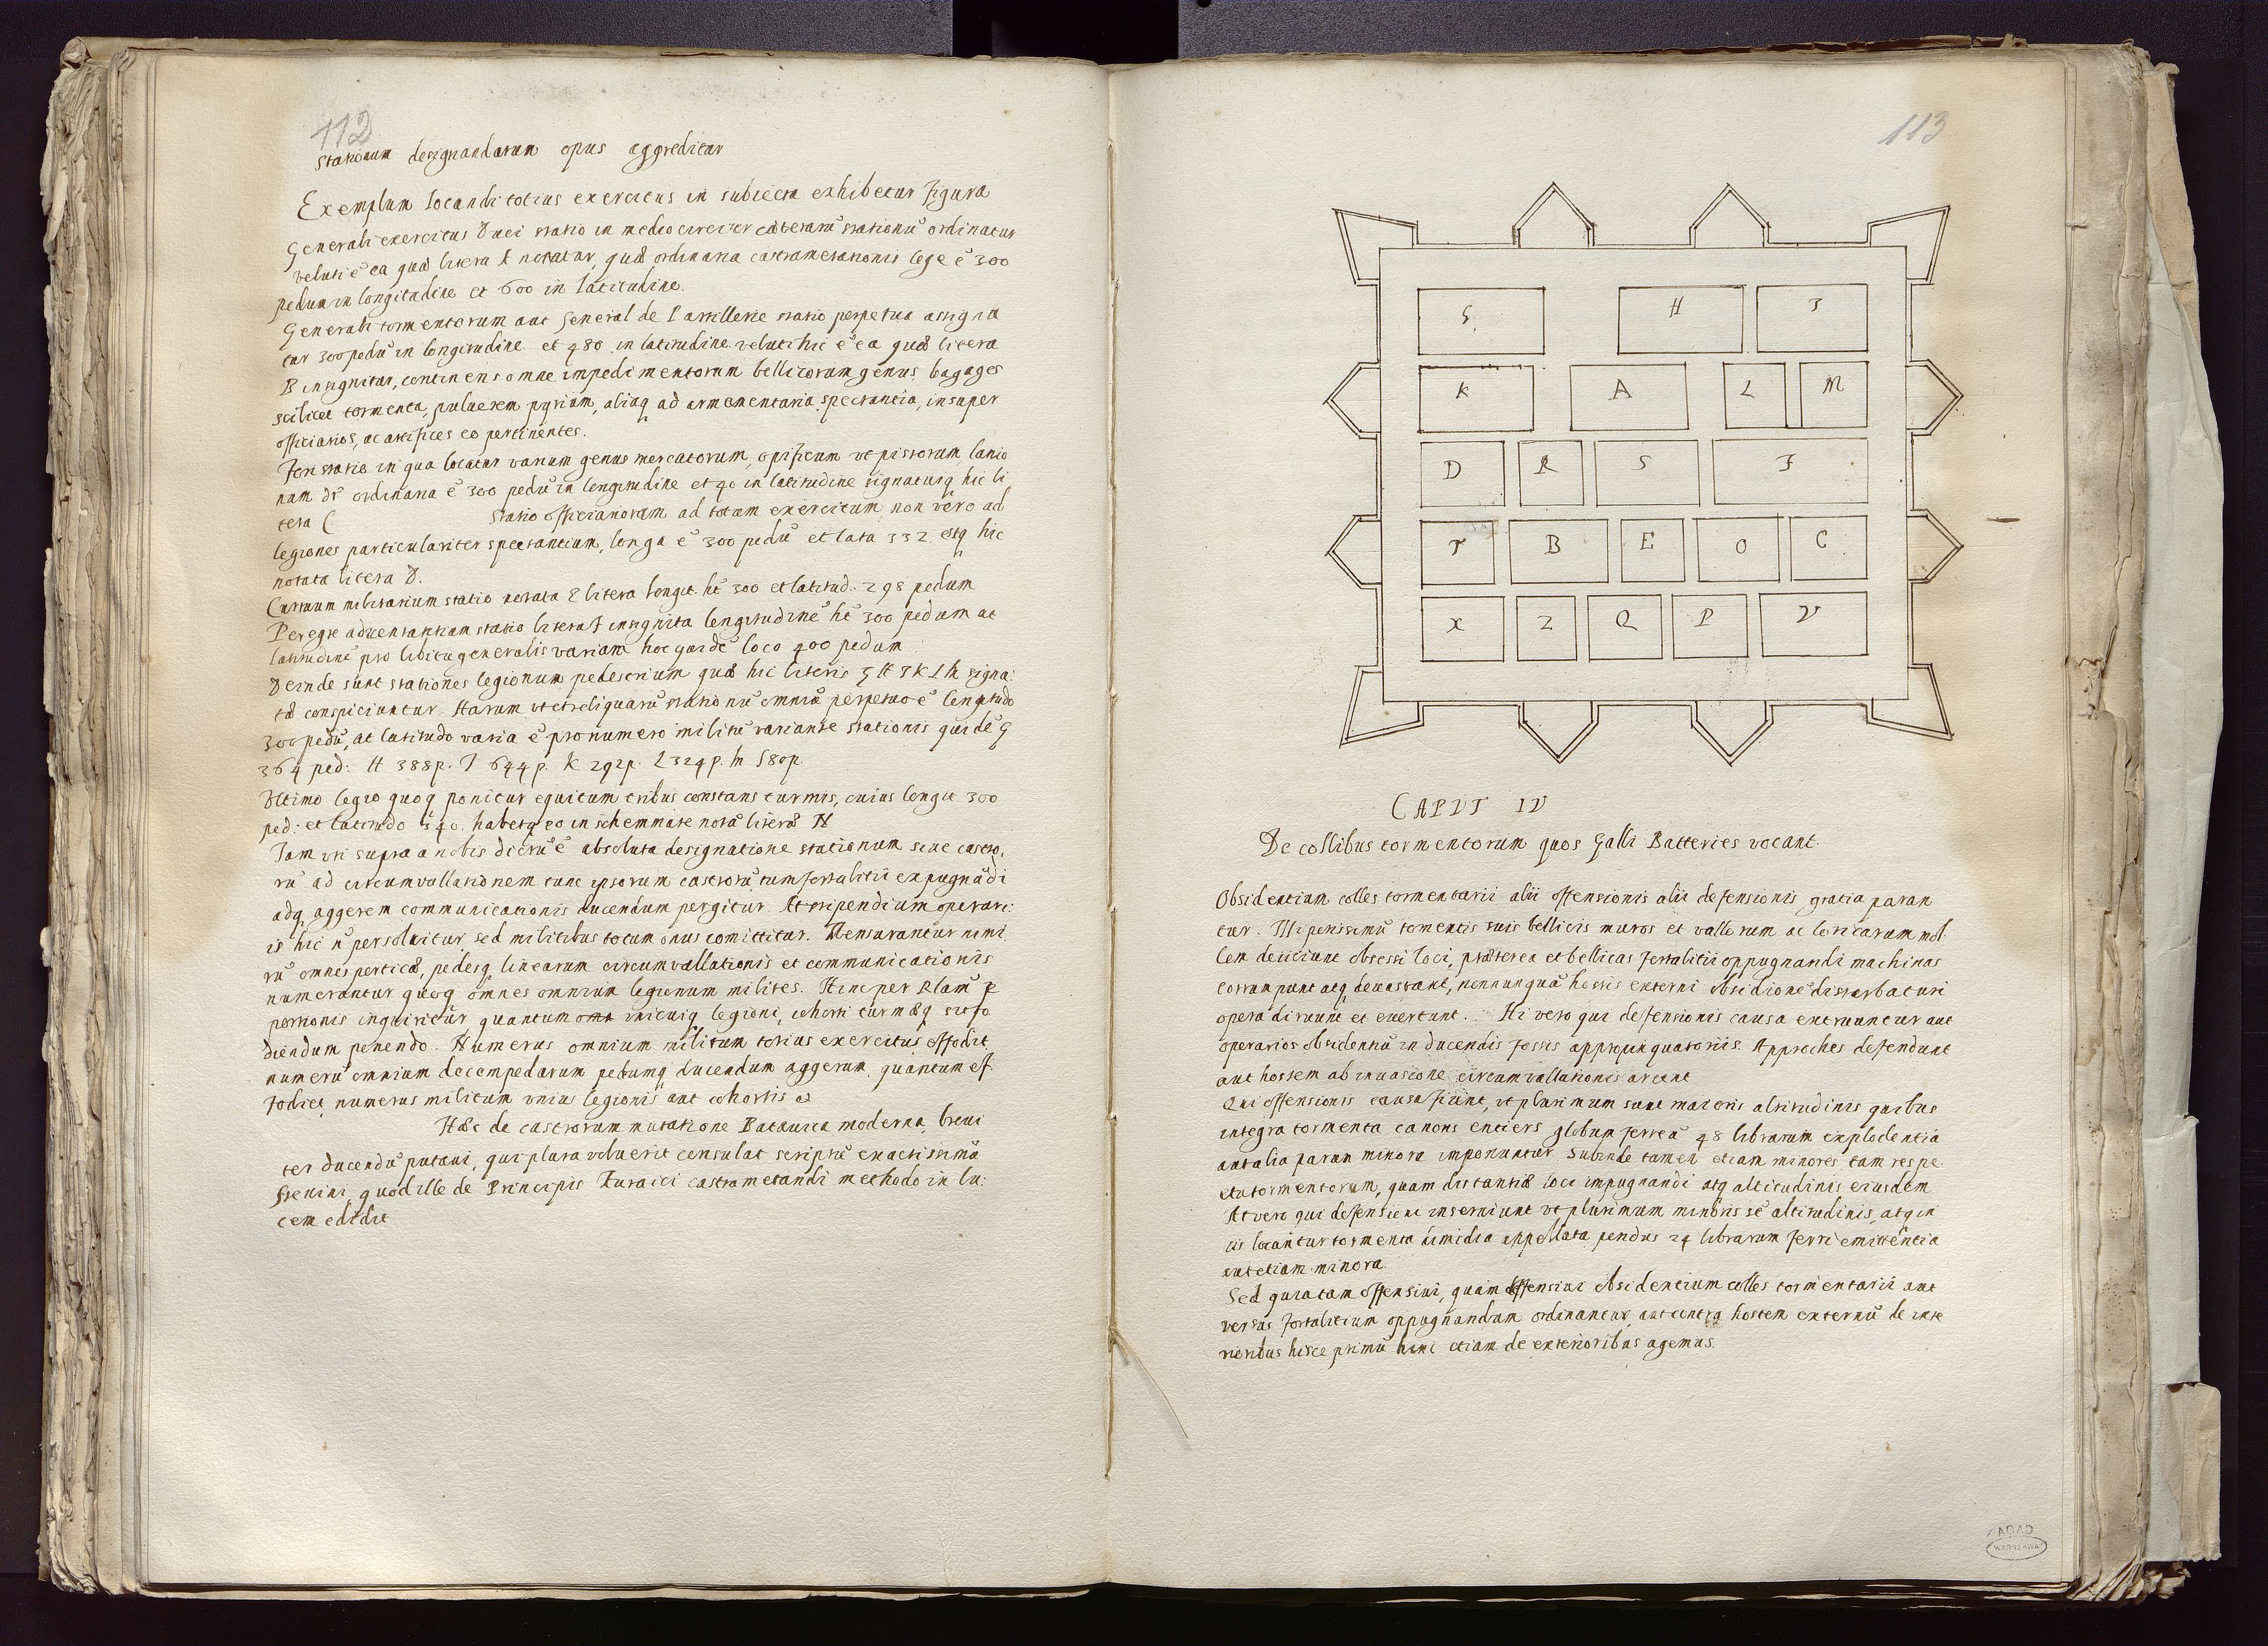 112
stationum designandarum opus aggreditur
Exemplum locandi totius exercitus in subiecta exhibetur figura
Generali exercitus Duci statio in medio circiter cæterarũ stationũ ordinatur
veluti ẽ ea quæ litera A notatur, quæ ordinaria castrametationis lege ẽ 300
pedum in longitudine et 600 in latitudine.
Generali tormentorum aut General de l'artillerie statio perpetua assigna
tur 300 pedũ in longitudine et 480 in latitudine veluti hic ẽ ea quæ litera
B insignitur, continens omne impedimentorum bellicorum genus, bagages
scilicet tormenta, pulverem pyrium, aliaq ad armamentaria spectantia, insuper
officiarios, ac artifices eo pertinentes.
Fori statio in qua locatur varium genus mercatorum, opificum ut pistorum, lanio
num &c ordinaria ẽ 300 pedũ in longitudine et 40 in latitudine signaturq hic li
tera C statio officianorum ad totam exercitum, non vero ad
legiones particulariter spectantium, longa ẽ 300 pedũ et lata 332 estq hic
notata litera D.
Curruum militarium statio notata E litera longit. hẽ 300 et latitud. 298 pedum
Peregre adventantium statio litera F insignita longitudinẽ hẽ 300 pedum at
latitudinẽ pro libitu generalis variam hoc quidẽ loco 400 pedum
Deinde sunt stationes legionum pedestrium quæ hic literis G H I K L M signa:
tæ conspiciuntur. Harum ut et reliquarũ stationũ omniũ perpetuo ẽ longitudo
300 pedũ, at latitudo varia ẽ pro numero militũ variante stationis quidẽ G
364 ped: H 388 p. I 644 p. K 292 p. L 324 p. M 580 p.
Ultimo legio quoq ponitur equitum tribus constans turmis, cuius longit 300
ped: et latitudo 540. habetq eo in schemmate notã literæ N
Iam uti supra a nobis dictũ ẽ absoluta designatione stationum sive castro,
rũ ad circumvallationem tunc ipsorum castrorũ, tum fortalitii expugnãdi
adq aggerem communicationis ducendum pergitur. At stipendium operari:
is hic ñ persolvitur sed militibus totum onus comittitur. Mensurantur nimi
rũ omnes perticæ, pedesq linearum circumvallationis et communicationis
numerantur quoq omnes omnium legionum milites. Hinc per Rlam p
portionis inquiritur quantum unicuiq legioni, cohorti turmæq sit fo
diendum ponendo. Numerus omnium militum totius exercitus effodit
numerũ omnium decempedarum pedumq ducendum aggerum, quantum ef
fodiet numerus militum unius legionis aut cohortis &
Hæc de castrorum mutatione Batavica moderna, brevi
ter ducendũ putavi, qui plura voluerit consulat scriptũ exactissimũ
Stevini, quod ille de Principis Auraici castrametandi methodo in lu:
cem edidit
113
G H I
K A L M
D R S F
T B E O C
X Z Q P V
CAPUT IV
De collibus tormentorum quos Galli Batteries vocant.
Obsidentium colles tormentarii alii offensionis alii defensionis gratia paran
tur. Illi potissimũ tormentis suis bellicis muros et vallorum ac loricarum mol
lem deiiciunt obsessi loci, præterea et bellicas fortalitii oppugnandi machinas
corrumpunt atq devastant, nonnunquã hostis externi obsidionẽ disturbaturi
opera diruunt et evertunt. Hi vero qui defensionis causa extruuntur aut
operarios obsidentiũ in ducendis fossis appropinquatoriis Approches defendunt
aut hossem ab invasione circumvallationis arcent
Qui offensionis causa fiunt, ut plurimum sunt maioris altitudinis quibus
integra tormenta canons entiers globum ferreũ 48 librarum explodentia
aut alia parum minora imponuntur. Subinde tamen etiam minores, tam respe:
ctu tormentorum, quam distantiæ loci impugnandi atq altitudinis eiusdem
At vero qui defensioni inserviunt ut plurimum minoris sẽ altitudinis, atq in
iis locantur tormenta dimidia appellata pondus 24 librarum ferri emittẽntia
aut etiam minora.
Sed quia tam offensivi, quam defensivi obsidentium colles tormentarii aut
versus fortalitium oppugnandum ordinantur, aut contra hostem externũ de inte
rioribus hisce primũ hinc etiam de exterioribus agemus.
AGAD
WARSZAWA